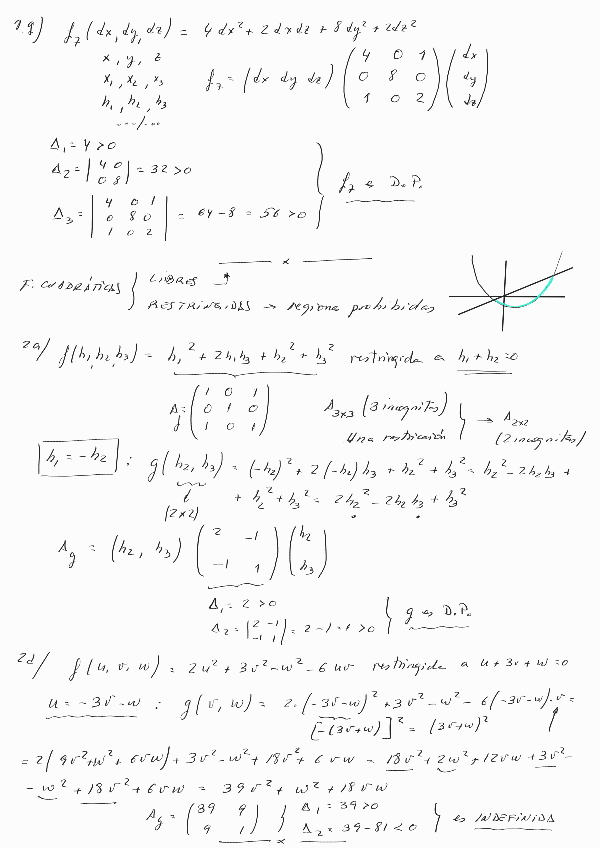 1.g) f₇(dx, dy, dz) = 4dx² + 2dxdz + 8dy² + 2dz²
x, y, z
x₁, x₂, x₃
h₁, h₂, h₃
f₇ = (dx dy dz) ( 4 0 1 ) ( dx )
( 0 8 0 ) ( dy )
( 1 0 2 ) ( dz )
Δ₁ = 4 > 0
Δ₂ = | 4 0 | = 32 > 0
| 0 8 |
Δ₃ = | 4 0 1 | = 64 - 8 = 56 > 0
| 0 8 0 |
| 1 0 2 |
} f₇ es D.P.
x
F. CUADRÁTICAS { LIBRES
RESTRINGIDAS → regiones prohibidas
2a/ f(h₁, h₂, h₃) = h₁² + 2h₁h₃ + h₂² + h₃² restringida a h₁ + h₂ = 0
A_f = ( 1 0 1 )
( 0 1 0 )
( 1 0 1 )
A₃ₓ₃ (3 incognitas)
Una restricción
} → A₂ₓ₂
(2 incognitas)
h₁ = -h₂ : g(h₂, h₃) = (-h₂)² + 2(-h₂)h₃ + h₂² + h₃² = h₂² - 2h₂h₃ +
(2x2) + h₂² + h₃² = 2h₂² - 2h₂h₃ + h₃²
A_g = (h₂, h₃) ( 2 -1 ) ( h₂ )
( -1 1 ) ( h₃ )
Δ₁ = 2 > 0
Δ₂ = | 2 -1 | = 2 - 1 = 1 > 0
| -1 1 |
} g es D.P.
2d/ f(u, v, w) = 2u² + 3v² - w² - 6uv restringida a u + 3v + w = 0
u = -3v - w : g(v, w) = 2·(-3v-w)² + 3v² - w² - 6(-3v-w)·v =
[-(3v+w)]² = (3v+w)²
= 2(9v² + w² + 6vw) + 3v² - w² + 18v² + 6vw = 18v² + 2w² + 12vw + 3v² -
- w² + 18v² + 6vw = 39v² + w² + 18vw
A_g = ( 39 9 ) } Δ₁ = 39 > 0
( 9 1 ) Δ₂ = 39 - 81 < 0
} es INDEFINIDA
x